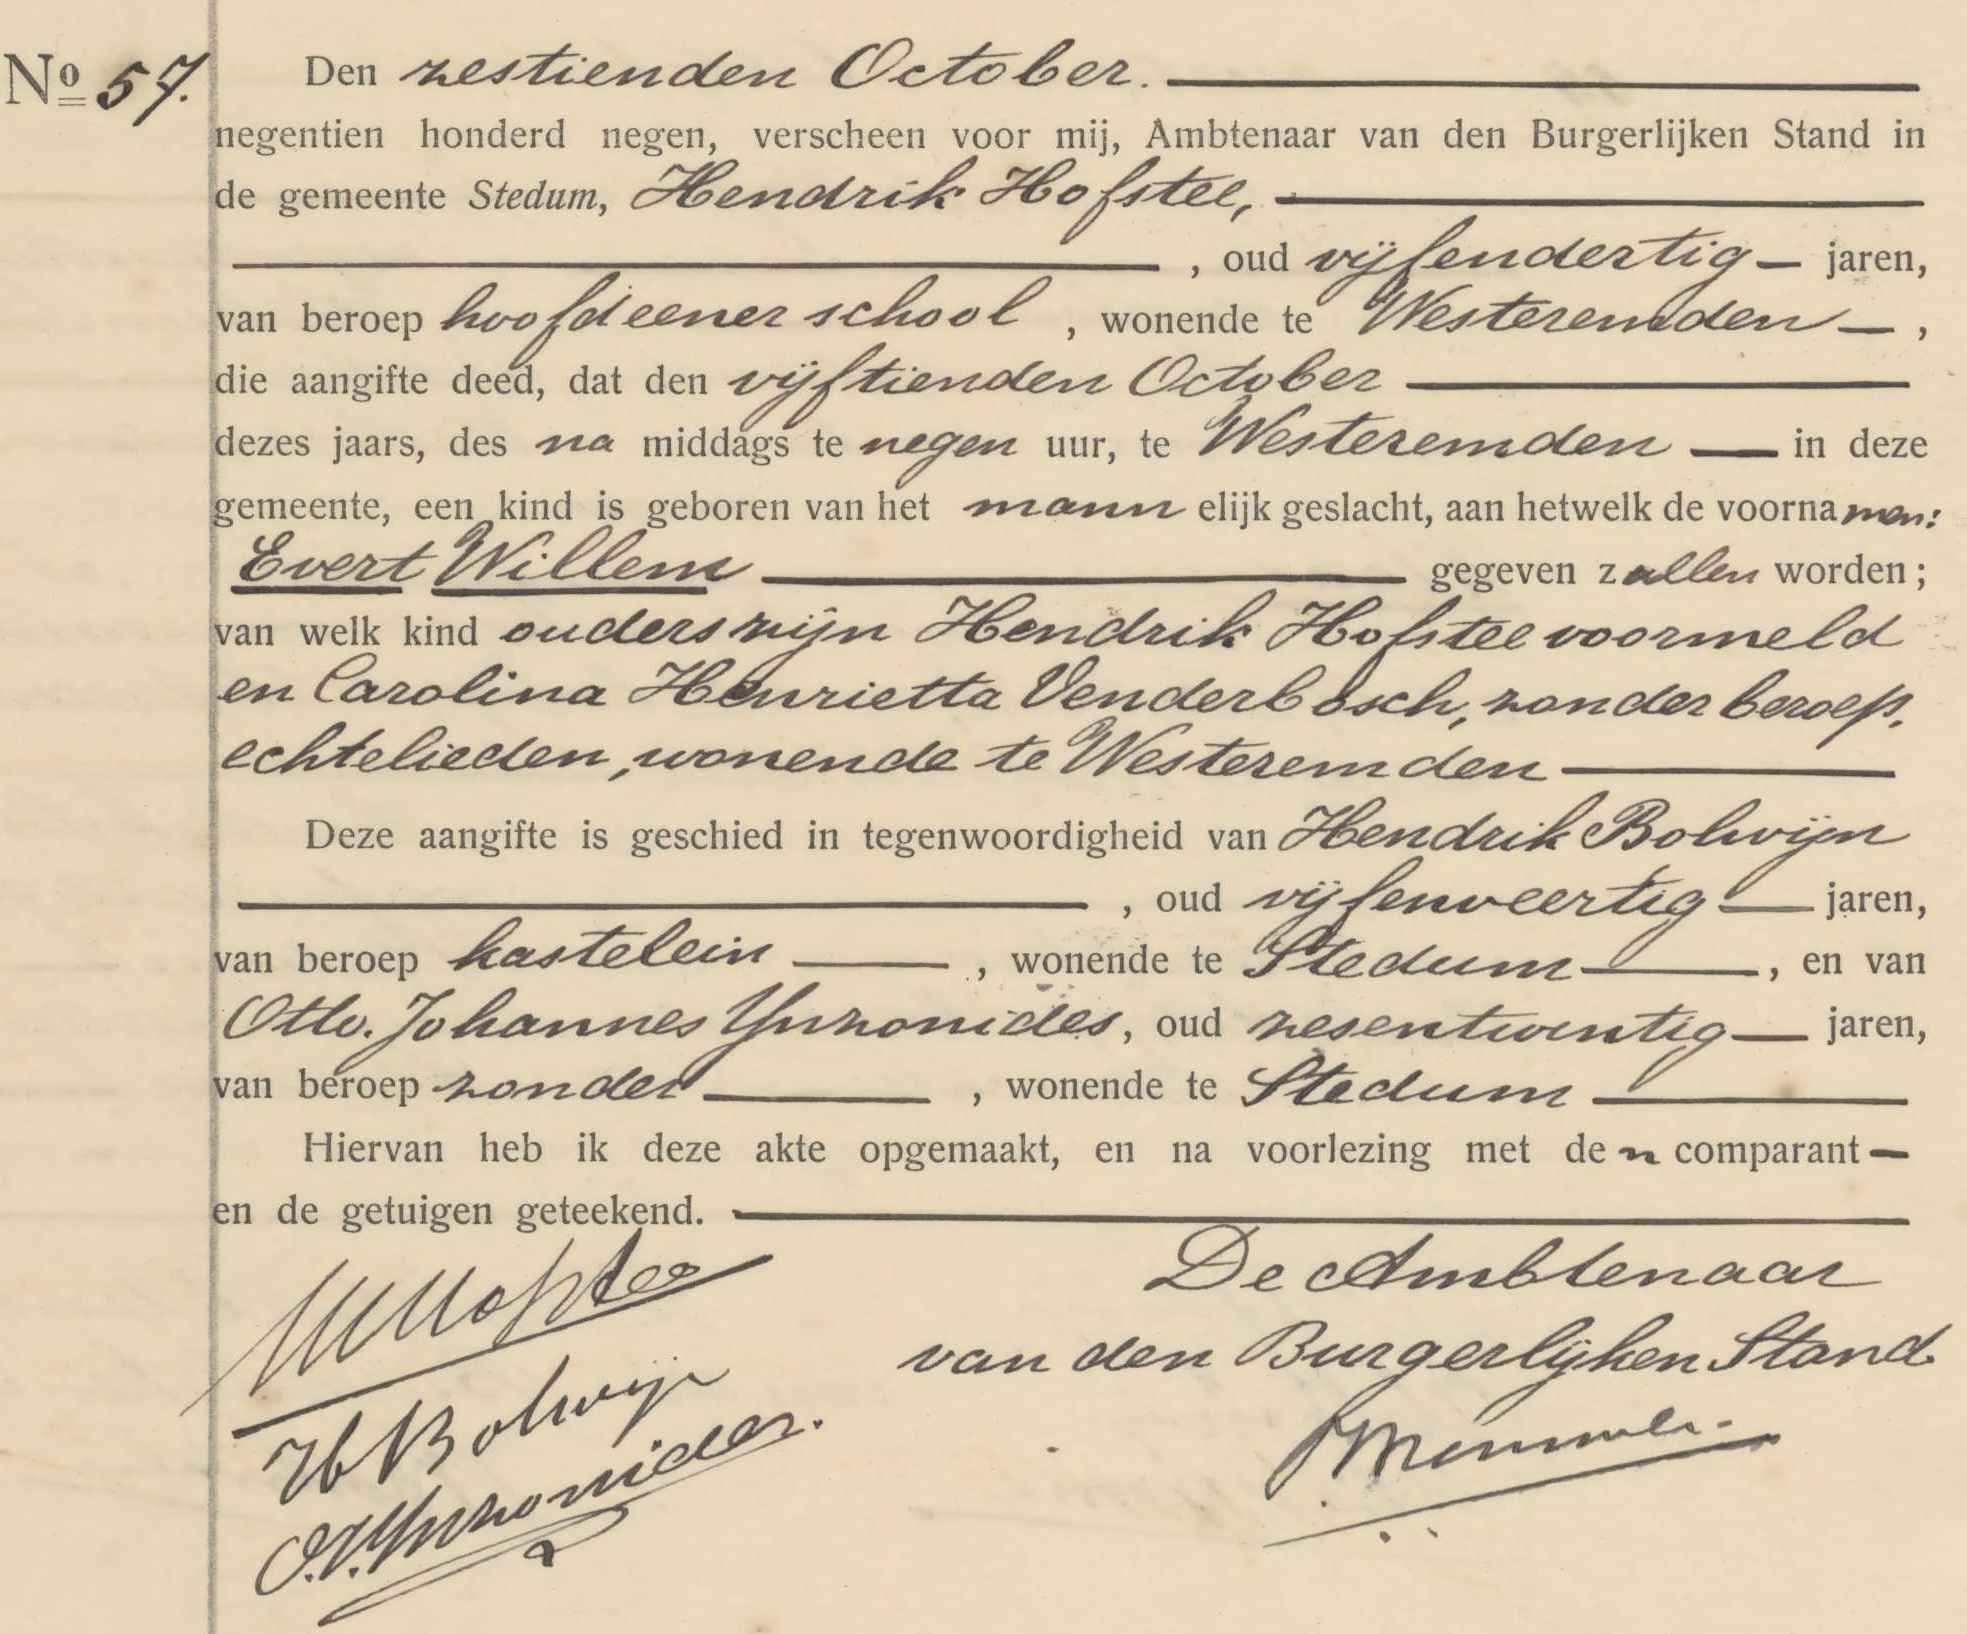 No 57.
Den zestienden October.
negentien honderd negen, verscheen voor mij, Ambtenaar van den Burgerlijken Stand in
de gemeente Stedum, Hendrik Hofstee,
, oud vijfendertig jaren,
van beroep hoofd eener school, wonende te Westeremden,
die aangifte deed, dat den vijftienden October
dezes jaars, des na middags te negen uur, te Westeremden in deze
gemeente, een kind is geboren van het mannelijk geslacht, aan hetwelk de voornamen:
Evert Willem gegeven zullen worden;
van welk kind ouders zijn Hendrik Hofstee voormeld
en Carolina Henrietta Venderbosch, zonder beroep,
echtelieden, wonende te Westeremden
Deze aangifte is geschied in tegenwoordigheid van Hendrik Bolwijn
, oud vijfenveertig jaren,
van beroep kastelein, wonende te Stedum, en van
Otto Johannes Ynzonides, oud zesentwintig jaren,
van beroep zonder, wonende te Stedum
Hiervan heb ik deze akte opgemaakt, en na voorlezing met den comparant
en de getuigen geteekend.
De Ambtenaar
van den Burgerlijken Stand.
Hofstee
H Bolwijn
O.J. Ynzonides.